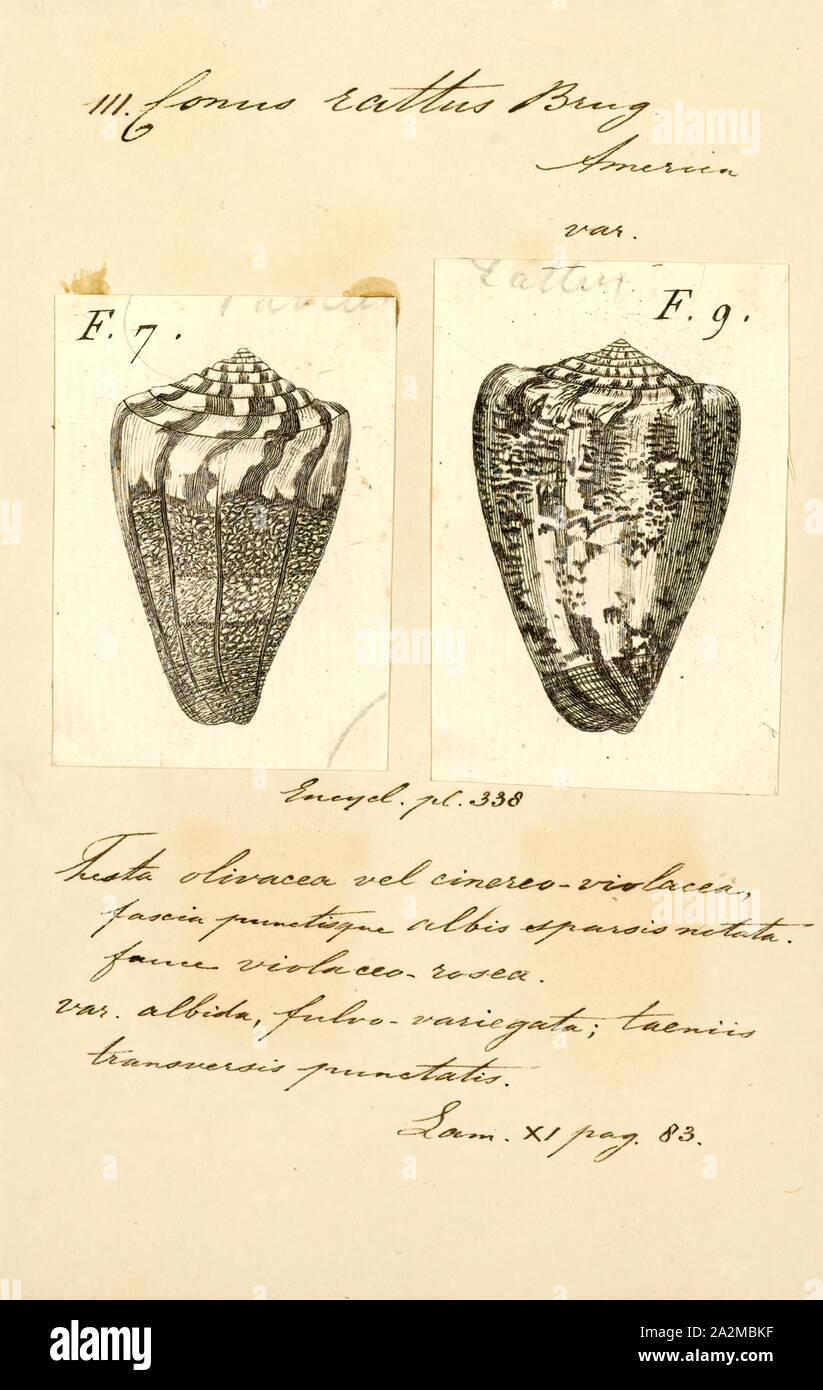 111. Conus rattus Brug.
America
var.
F. 7.
F. 9.
Encycl. pl. 338
Testa olivacea vel cinereo-violacea,
fascia punctisque albis sparsis notata.
fauce violaceo-rosea.
var. albida, fulvo-variegata; taeniis
transversis punctatis.
Lam. XI pag. 83.
alamy
alamy
Image ID: 2A2MBKF
www.alamy.com